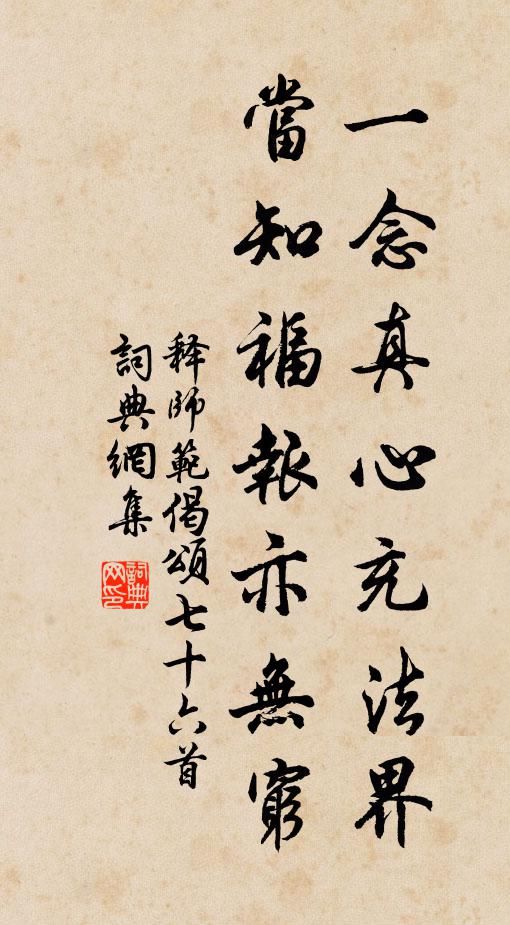 一念真心充法界
當知福報亦無窮
释師範偈頌七十六首
詞典網集
詞典网印